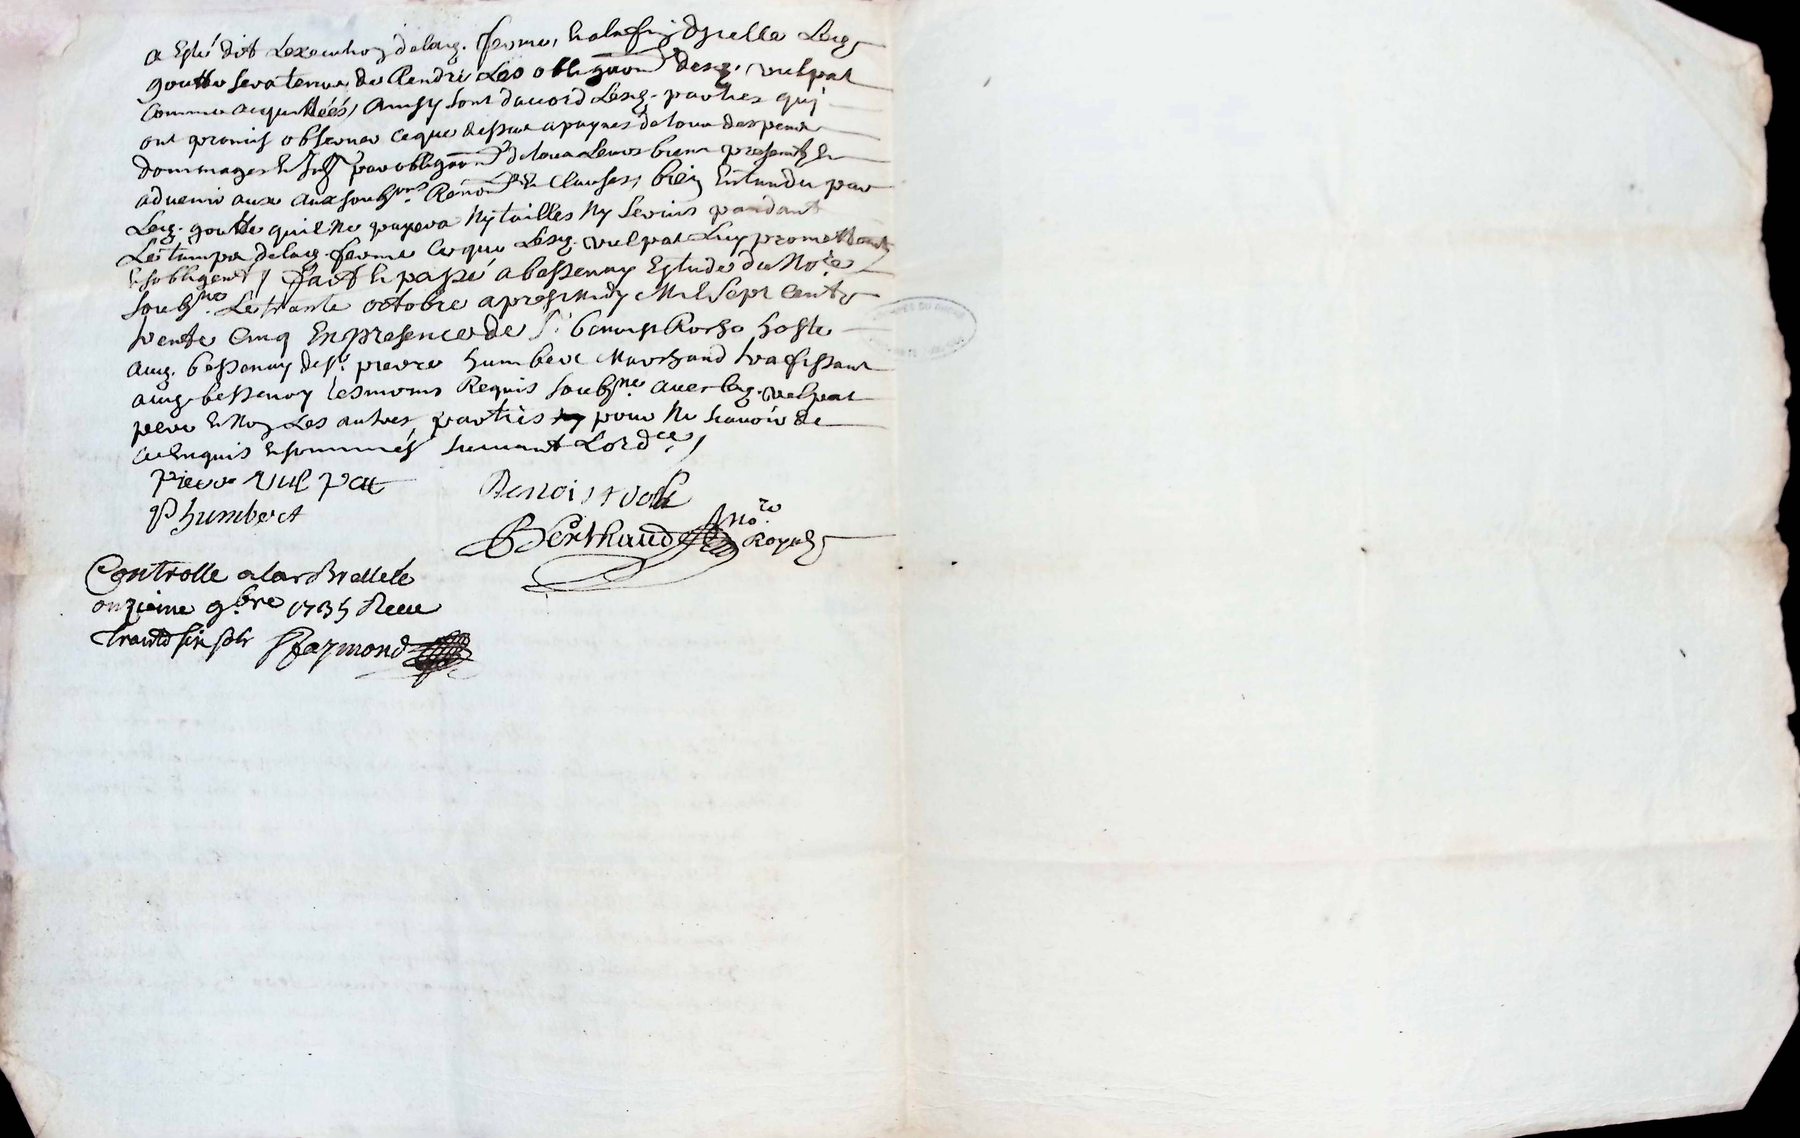 a esté dit Lexecution delad. ferme, et a la fin dyselle Led.
goutte sera tenu de Rendre Les obligaons desd. vulpat
Comme acquittéés, Ainsy sont daccord Lesd. parties qui
ont promis observer ceque dessus a paynes de tous despens
dommages et Int. par obligaon de tous Leurs biens presents et
advenir aux soubs. Renon. et Clauses, bien Entendu par
Led. goutte quil Ne payera Ny tailles Ny Servis pandant
Le temps delad. ferme ce que Lesd. vulpat Luy promettent
et sobligent / faict et passé a bessenay Estude du No.re
soubs.né Le trante octobre apres Midy Mil sept Cents
trente Cinq En presence de Sr. benoist Roche hoste
aud. bessenay de Sr. pierre humbert Marchand traffissant
aud. bessenay tesmoins Requis soubs.nés avec led. vulpat
pere et Non Les autres parties pour Ne scavoir de
ce Enquis et sommés suivant Lord.ce /
Pierre vul pat
Benoist roche
P humbert
Berthaud no.re Royal
Controlle a larbrelle le
onzieme 9bre 1735 Receu
trante six sols Raymond